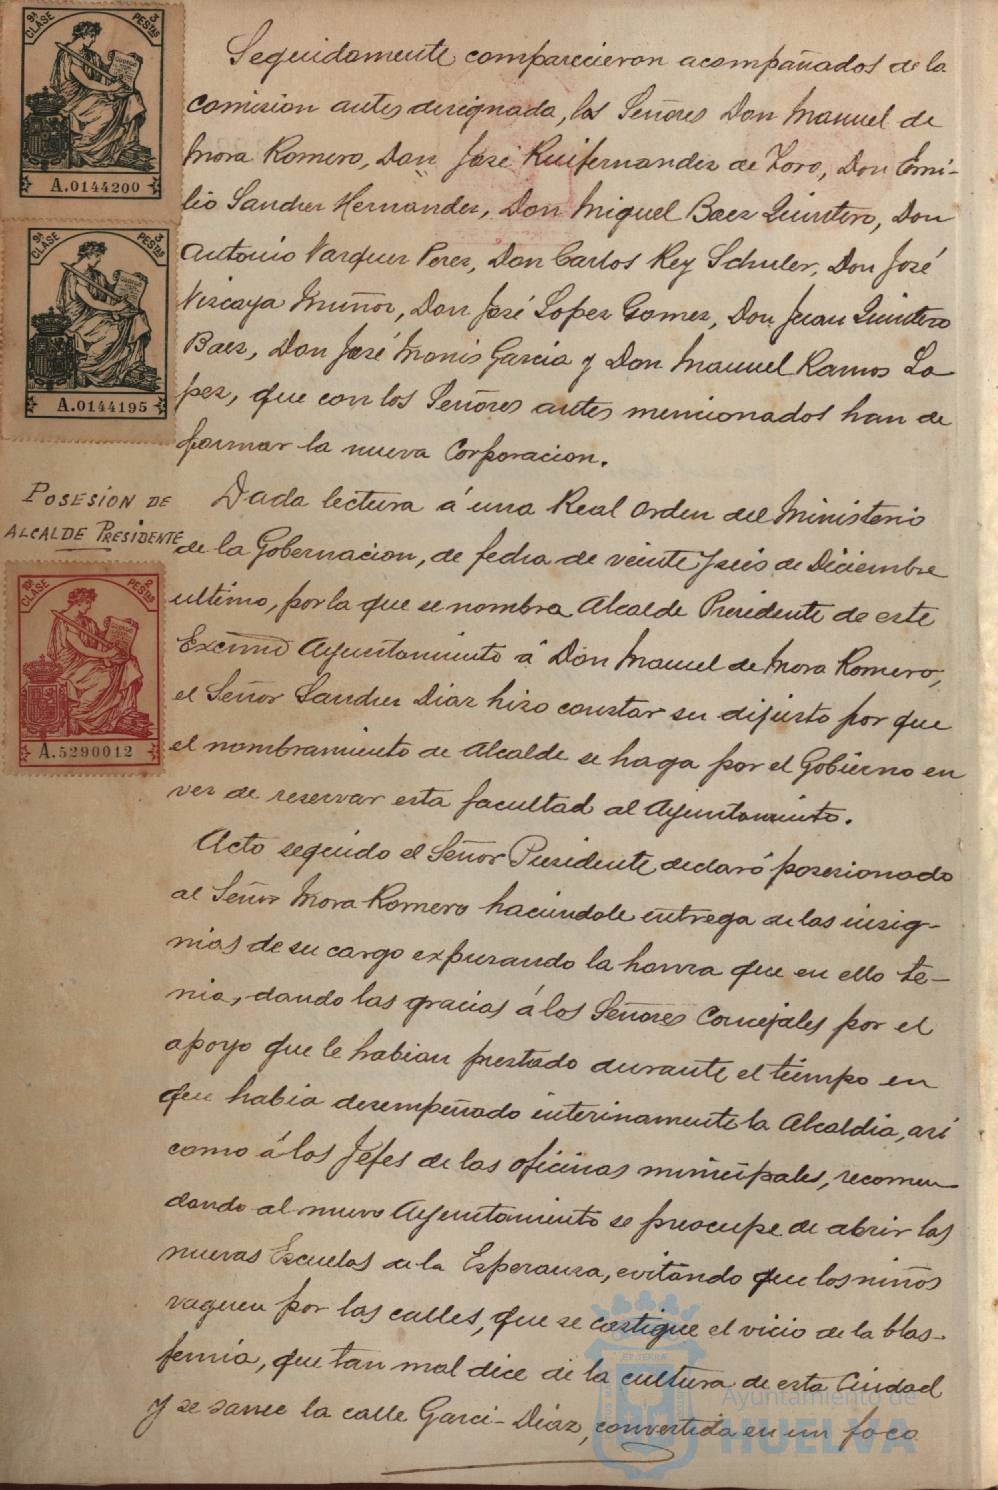 9ª CLASE 3 PESTAS
A.0144200
9ª CLASE 3 PESTAS
A.0144195
Seguidamente comparecieron acompañados de la
comision antes designada, los Señores Don Manuel de
Mora Romero, Don José Ruifernandez de Toro, Don Emi-
lio Sanchez Hernandez, Don Miguel Baez Quintero, Don
Antonio Vazquez Perez, Don Carlos Rey Schuler, Don José
Vizcaya Muñoz, Don José Lopez Gomez, Don Juan Quintero
Baez, Don José Monis Garcia y Don Manuel Ramos Lo
pez, que con los Señores antes mencionados han de
formar la nueva Corporacion.
POSESIÓN DE
ALCALDE PRESIDENTE
8ª CLASE 2 PESTAS
A.5290012
Dada lectura á una Real Orden del Ministerio
de la Gobernacion, de fecha de veinte y seis de Diciembre
ultimo, por la que se nombra Alcalde Presidente de este
Excmo Ayuntamiento á Don Manuel de Mora Romero,
el Señor Sanchez Diaz hizo constar su disgusto por que
el nombramiento de Alcalde se haga por el Gobierno en
vez de reservar esta facultad al Ayuntamiento.
Acto seguido el Señor Presidente declaró posesionado
al Señor Mora Romero haciendole entrega de las insig-
nias de su cargo expresando la honra que en ello te-
nia, dando las gracias á los Señores Concejales por el
apoyo que le habian prestado durante el tiempo en
que habia desempeñado interinamente la Alcaldia, asi
como á los Jefes de las oficinas municipales, recomen
dando al nuevo Ayuntamiento se preocupe de abrir las
nuevas Escuelas de la Esperanza, evitando que los niños
vaguen por las calles, que se castigue el vicio de la blas-
femia, que tan mal dice de la cultura de esta Ciudad
y se sanee la calle Garci-Diaz, convertida en un foco
Ayuntamiento de
HUELVA